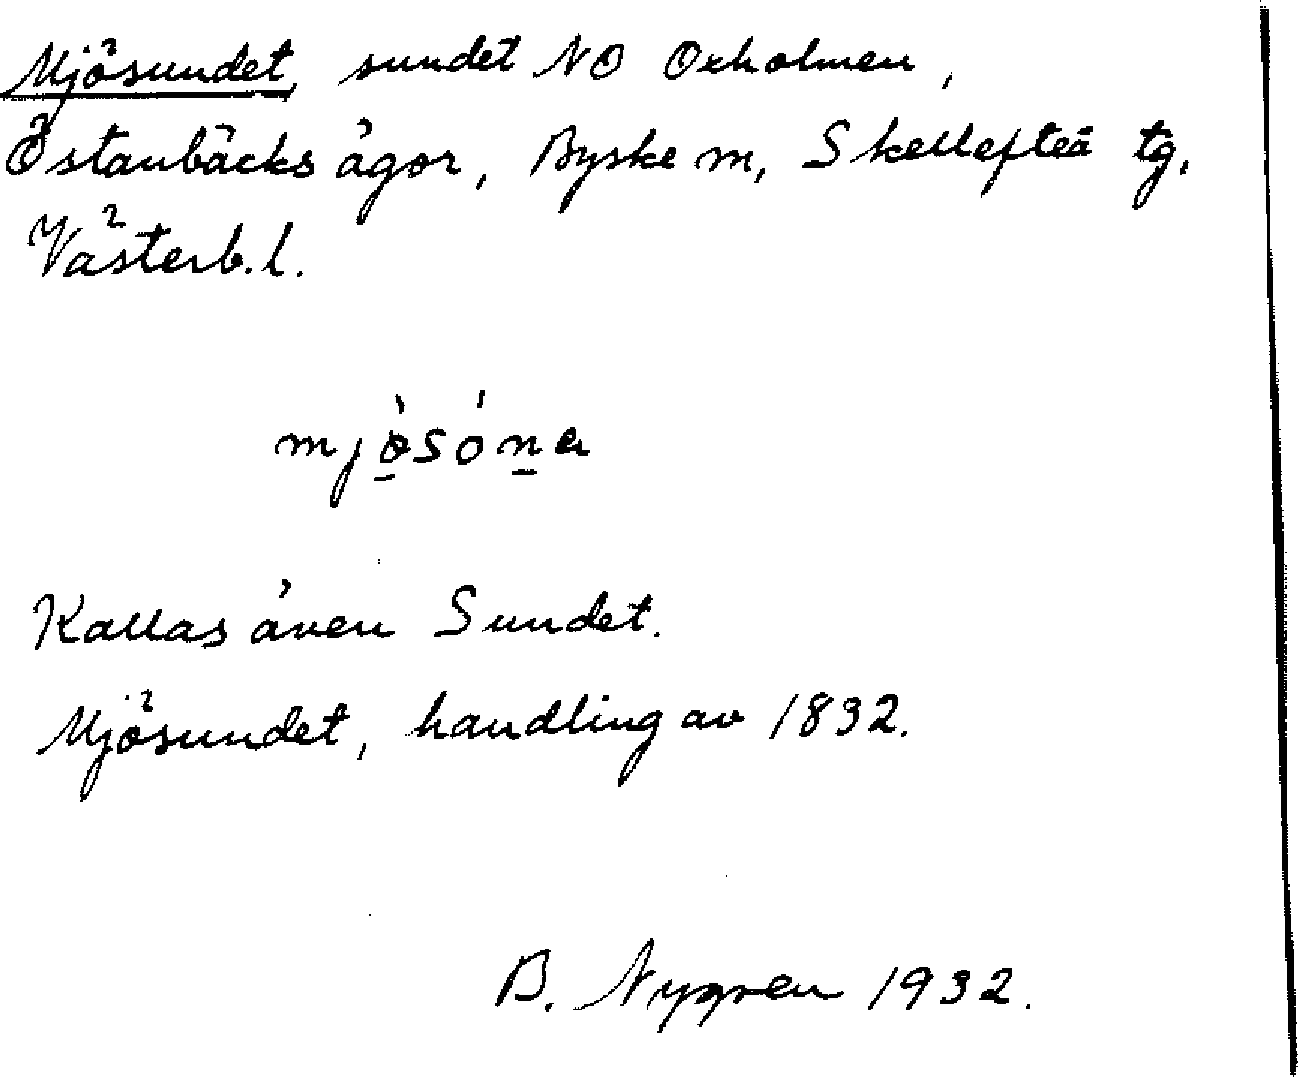 Mjösundet, sundet NO Oxholmen,
Östanbäcks ägor, Byske sn, Skellefteå tg,
Västerb. l.
mjö̀sóna
Kallas även Sundet.
Mjösundet, handling av 1832.
B. Nygren 1932.